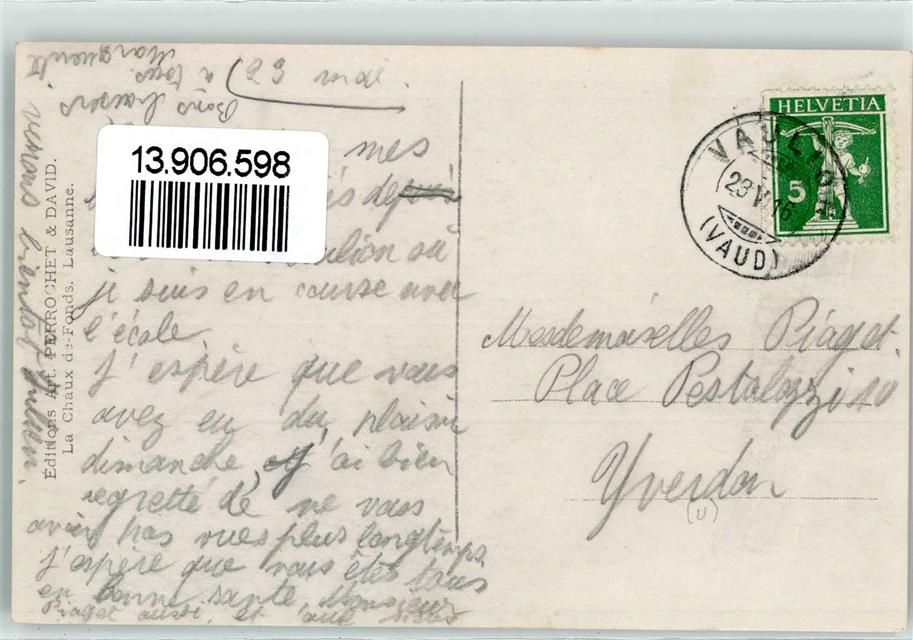 23 mai
Bons baisers
à tous.
Marguerite
13.906.598
mes
depuis
où
je suis en course avec
l'école.
J'espère que vous
avez eu du plaisir
dimanche, j'ai bien
regretté de ne vous
avoir pas vues plus longtemps
J'espère que vous êtes tous
en bonne santé Monsieur
Piaget aussi, et
Éditions Art. PERROCHET & DAVID.
La Chaux-de-Fonds. Lausanne.
HELVETIA
5
VAULION
23 V 16
(VAUD)
Mesdemoiselles Piaget.
Place Pestalozzi 10
Yverdon
(U)